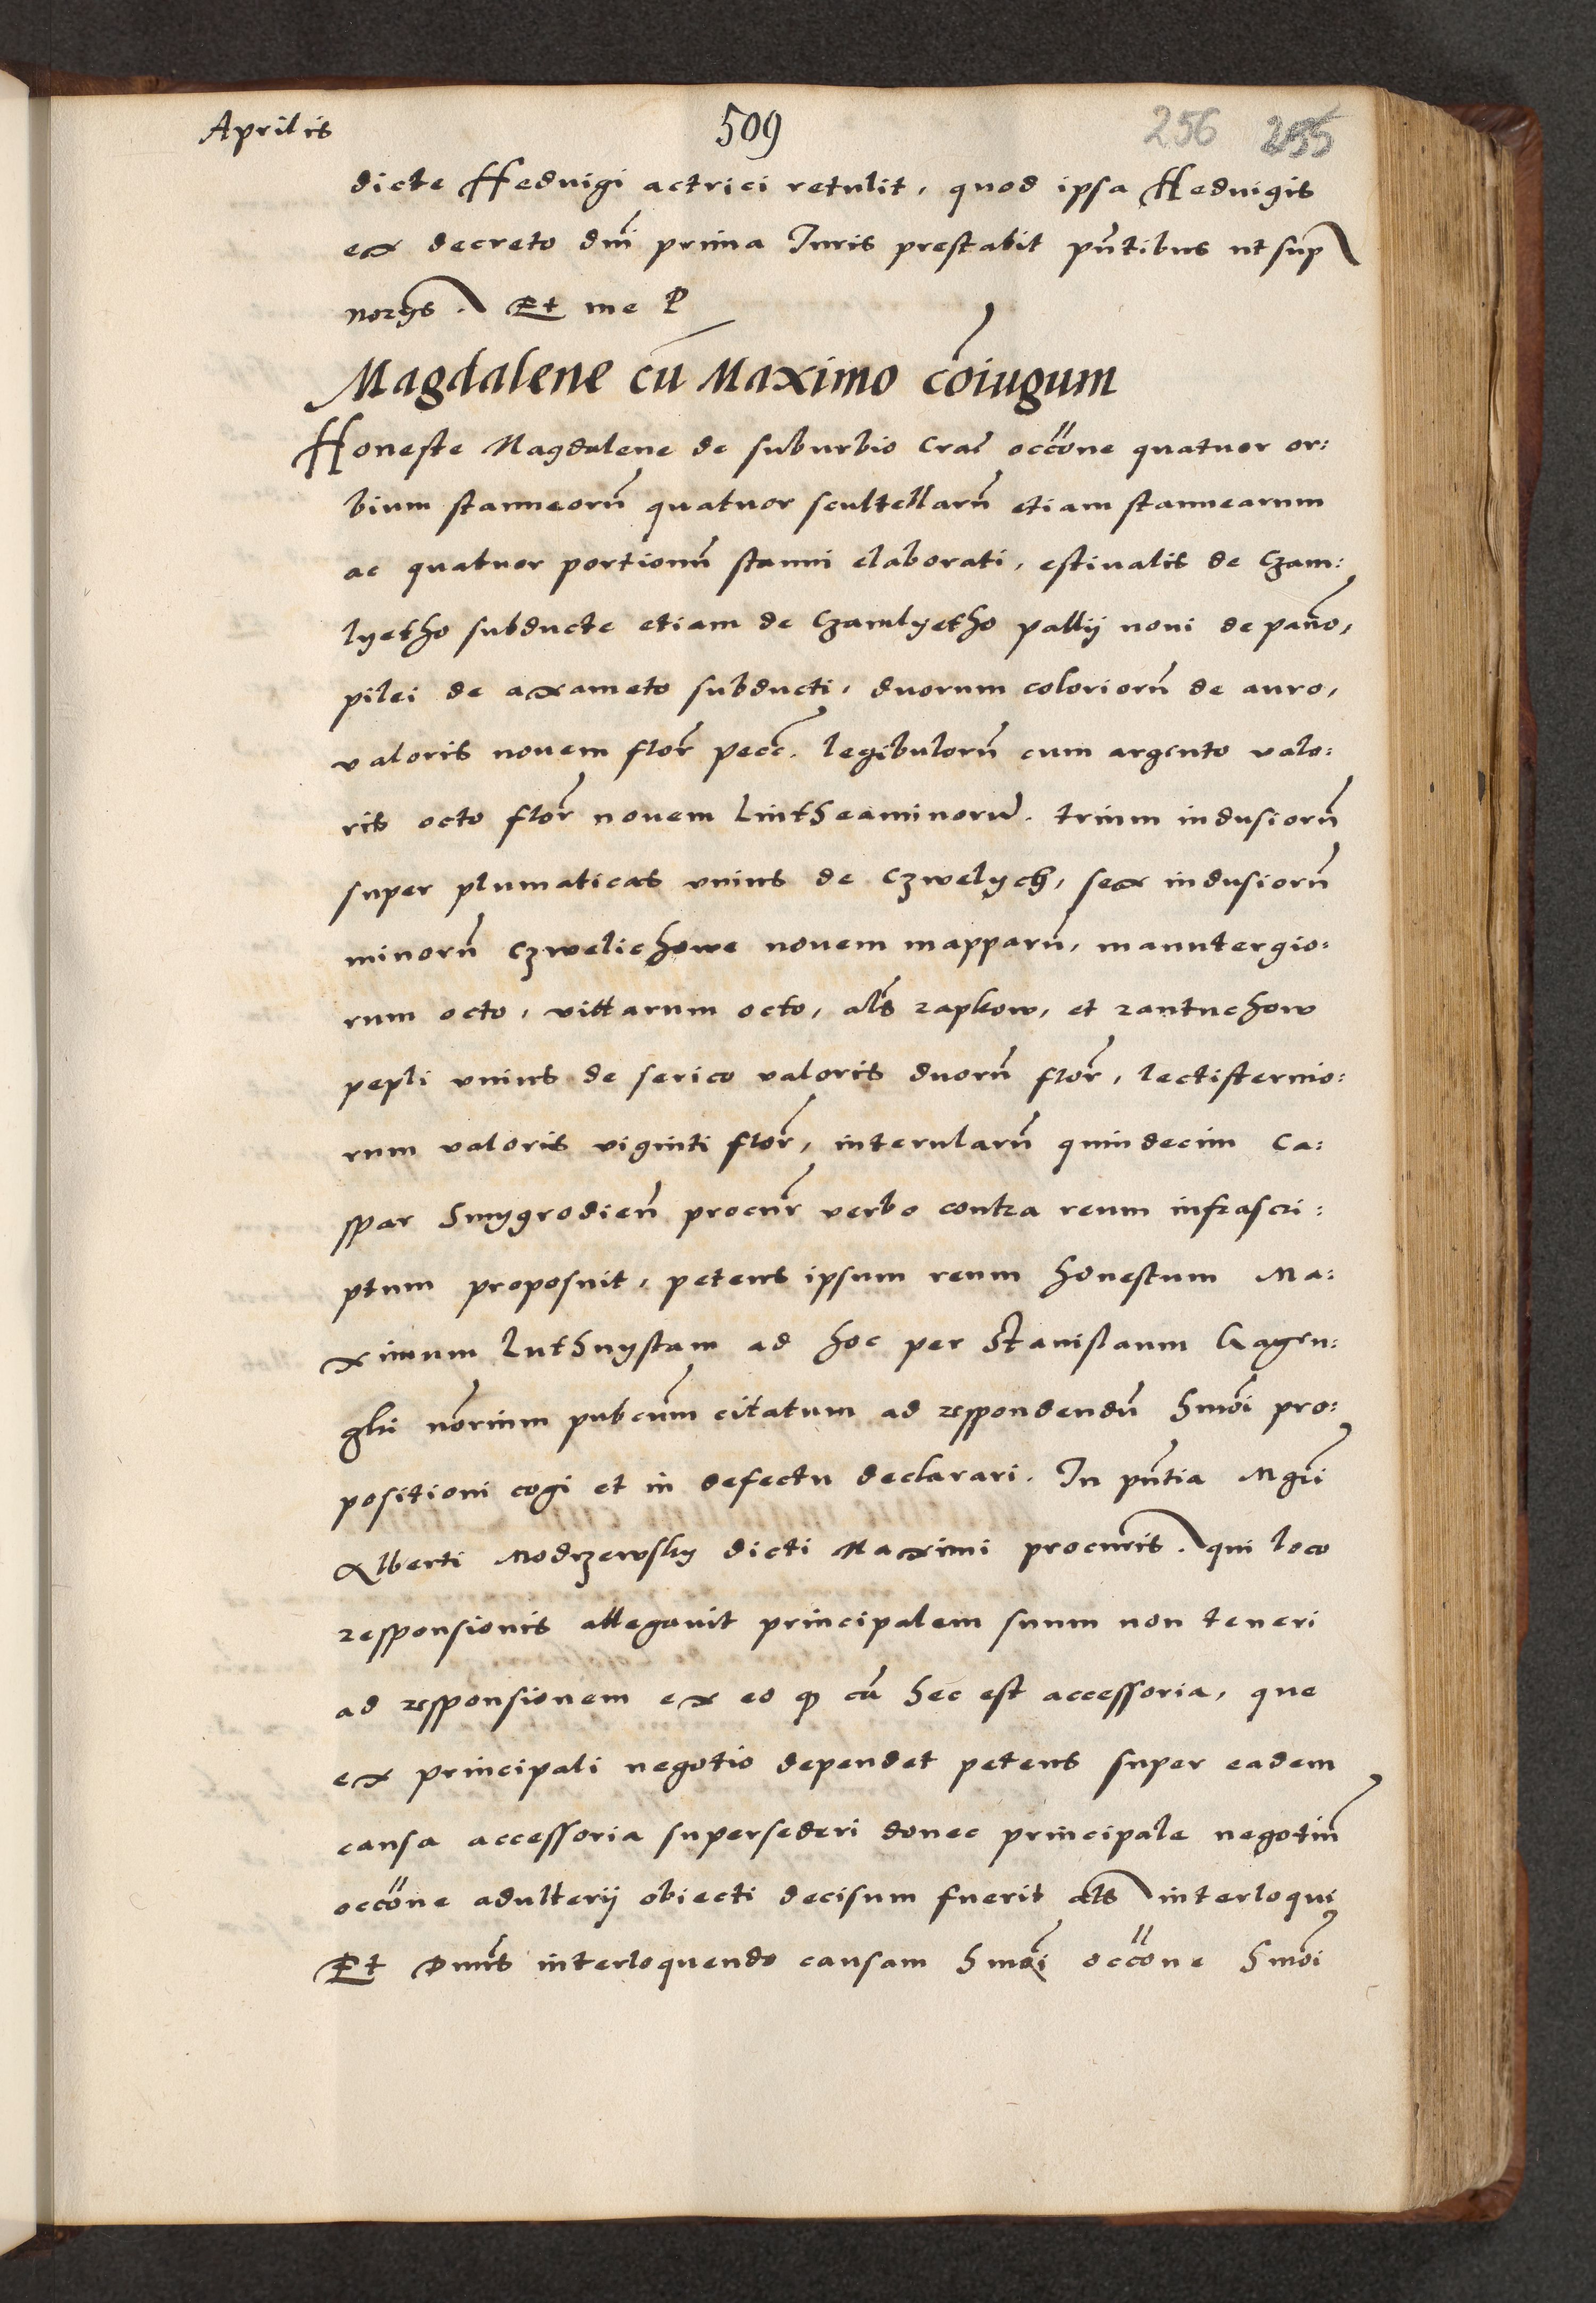 Aprilis 509 256 255
dicte Heduigi actrici retulit, quod ipsa Heduigis
ex decreto dni prima Iuris prestabit pntibus ut sup
norys. Et me P
Magdalene cu Maximo coiugum
Honeste Magdalene de suburbio Crac occone quatuor or:
bium stanneoru quatuor scultellaru etiam stannearum
ac quatuor portionu stanni elaborati, estiualis de Czam:
lyetho subducte etiam de Czamlyetho pallij noui de pano,
pilei de axameto subducti, duorum colorioru de auro,
valoris nouem flor pecc. legibuloru cum argento valo:
ris octo flor nouem Lintheaminoru. trium indusioru
super plumaticas vnius de Czwelych, sex indusioru
minoru Czwelichowe nouem mapparu, manutergio:
rum octo, vittarum octo, als rapkow, et rantuchow
pepli vnius de serico valoris duoru flor, lectisternio:
rum valoris viginti flor, interularu quindecim Ca:
spar Smygrodien procur verbo contra reum infrascri:
ptum proposuit, petens ipsum reum honestum Ma:
ximum Luthnystam ad hoc per Stanislaum Gagru:
glii norium pubcum citatum ad respondendu hmoi pro:
positioni cogi et in defectu declarari. In pntia Mgri
Alberti Modrzewsky dicti Maximi procuris. qui loco
responsionis allegauit principalem suum non teneri
ad responsionem ex eo q ca hec est accessoria, que
ex principali negotio dependet petens super eadem
causa accessoria supersederi donec principale negotiu
occone adulterij obiecti decisum fuerit als interloqui
Et Dnus interloquendo causam hmoi occone hmoi